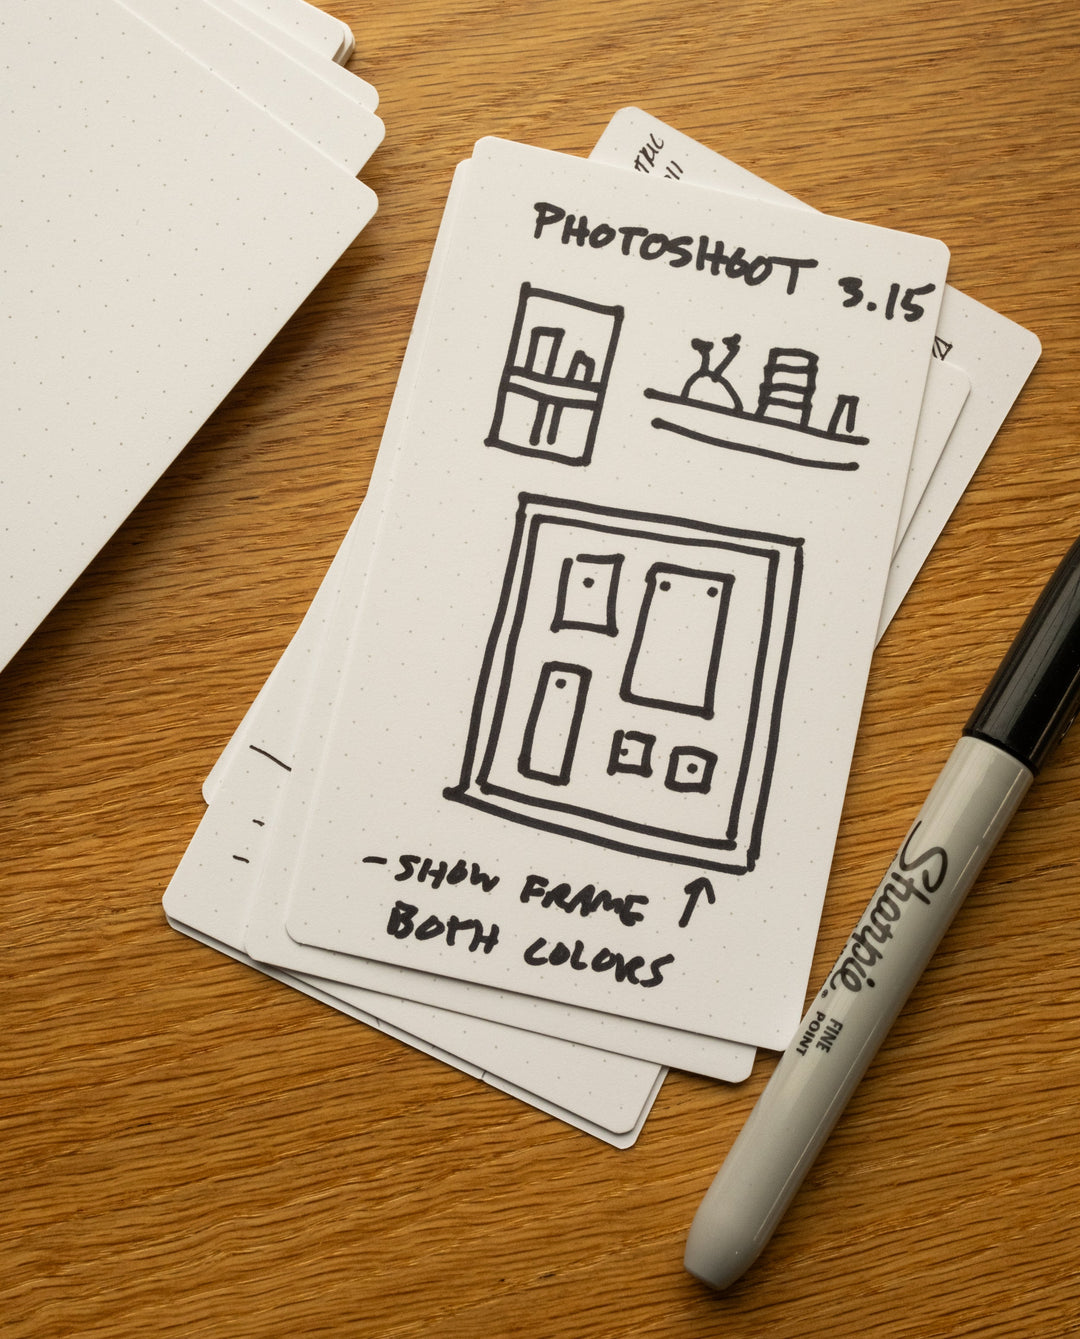 PHOTOSHOOT 3.15
-SHOW FRAME ↑
BOTH COLORS
Sharpie®
FINE
POINT